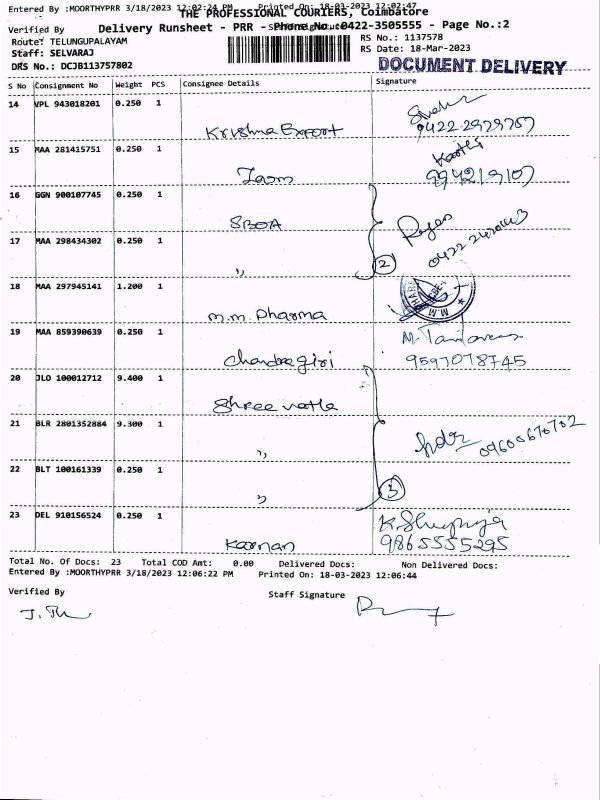 Entered By :MOORTHYPRR 3/18/2023 12:02:24 PM Printed On: 18-03-2023 12:02:47
THE PROFESSIONAL COURIERS, Coimbatore
Verified By
Delivery Runsheet - PRR - Phone No.:0422-3505555 - Page No.:2
Route: TELUNGUPALAYAM
RS No.: 1137578
Staff: SELVARAJ
RS Date: 18-Mar-2023
DRS No.: DCJB113757802
DOCUMENT DELIVERY
S No Consignment No Weight PCS Consignee Details Signature
14 VPL 943018201 0.250 1
Krishna Export 0422-2929757
15 MAA 281415751 0.250 1
16 GGN 900107745 0.250 1
SBOA
17 MAA 298434302 0.250 1
" 2
18 MAA 297945141 1.200 1
M.M. Pharma
19 MAA 859390639 0.250 1
Chandragiri 9597078745
20 JLO 100012712 9.400 1
21 BLR 2801352884 9.300 1
" 09600670702
22 BLT 100161339 0.250 1
" 3
23 DEL 910156524 0.250 1
Kannan 9865555295
Total No. Of Docs: 23 Total COD Amt: 0.00 Delivered Docs: Non Delivered Docs:
Entered By :MOORTHYPRR 3/18/2023 12:06:22 PM Printed On: 18-03-2023 12:06:44
Verified By Staff Signature